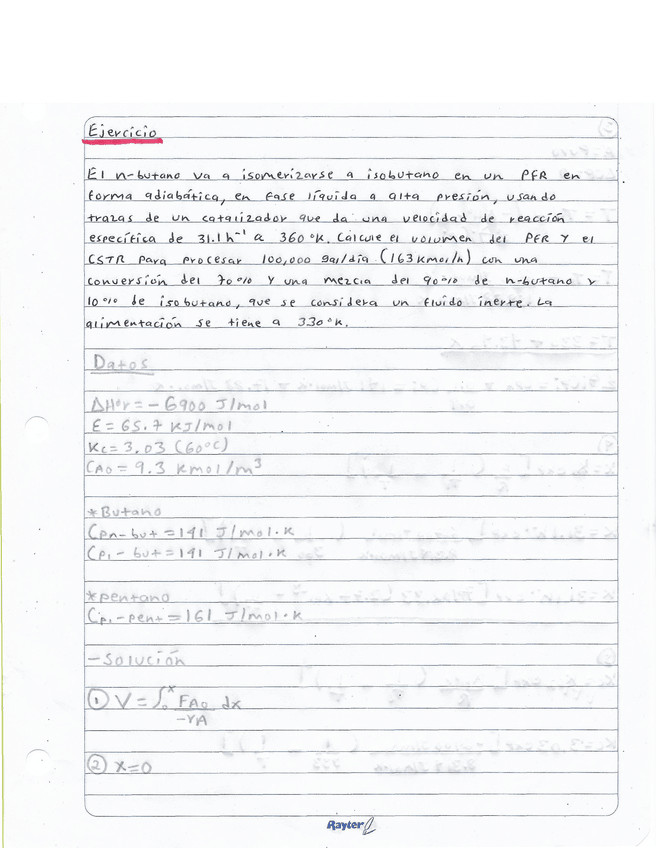 Ejercicio
El n-butano va a isomerizarse a isobutano en un PFR en
forma adiabática, en fase líquida a alta presión, usando
trazas de un catalizador que da una velocidad de reacción
específica de 31.1 h⁻¹ a 360°K. Calcule el volumen del PFR y el
CSTR para procesar 100,000 gal/día (163 kmol/h) con una
conversión del 70% y una mezcla del 90% de n-butano y
10% de isobutano, que se considera un fluido inerte. La
alimentación se tiene a 330°K.
Datos
ΔH°r = -6900 J/mol
E = 65.7 KJ/mol
Kc = 3.03 (60°C)
CA0 = 9.3 Kmol/m³
*Butano
Cpn-but = 141 J/mol·K
Cpi-but = 141 J/mol·K
*pentano
Cpi-pent = 161 J/mol·K
-Solución
① V = ∫₀ˣ FA0/-rA dx
② x=0
Rayter